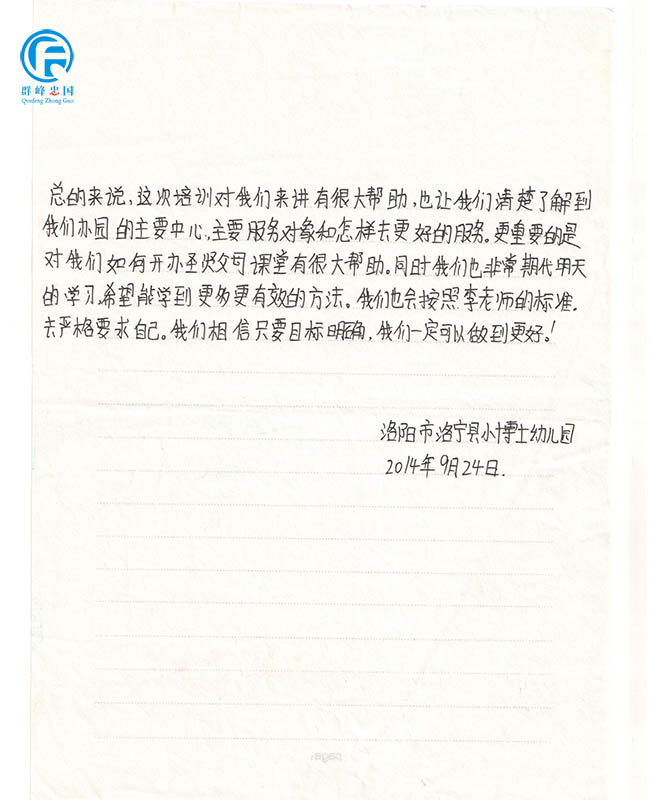 群峰忠国
Qunfeng Zhong Guo
总的来说,这次培训对我们来讲有很大帮助,也让我们清楚了解到
我们办园的主要中心,主要服务对象和怎样去更好的服务。更重要的是
对我们如何开办圣贤父母课堂有很大帮助。同时我们也非常期代明天
的学习,希望能学到更多更有效的方法。我们也会按照李老师的标准.
去严格要求自己。我们相信只要目标明确,我们一定可以做到更好!
洛阳市洛宁县小博士幼儿园
2014年9月24日.
page: